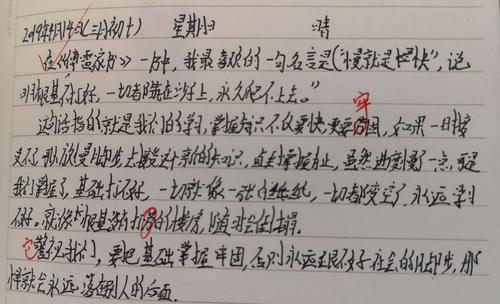 2019年4月14日(三月初十) 星期日 晴
在《傅雷家书》一书中,我最喜欢的一句名言是"慢就是快",说
根基不好,一切都落在沙上,永久爬不上去。"
这句话指的就是我们的学习,掌握知识不仅要快,更要牢固,如果一时接
受不了,那放慢脚步去接受新的知识,直到掌握为止,虽然进度慢了一点,可是
我们掌握了,基础打不好,一切就像一张白纸,一切都变空了,永远学
不好。就像根基没有打厚的楼房,随时会倒塌。
它警示我们,要把基础掌握牢固,否则永远跟不上的脚步,那
样就会永远落在别人的后面。